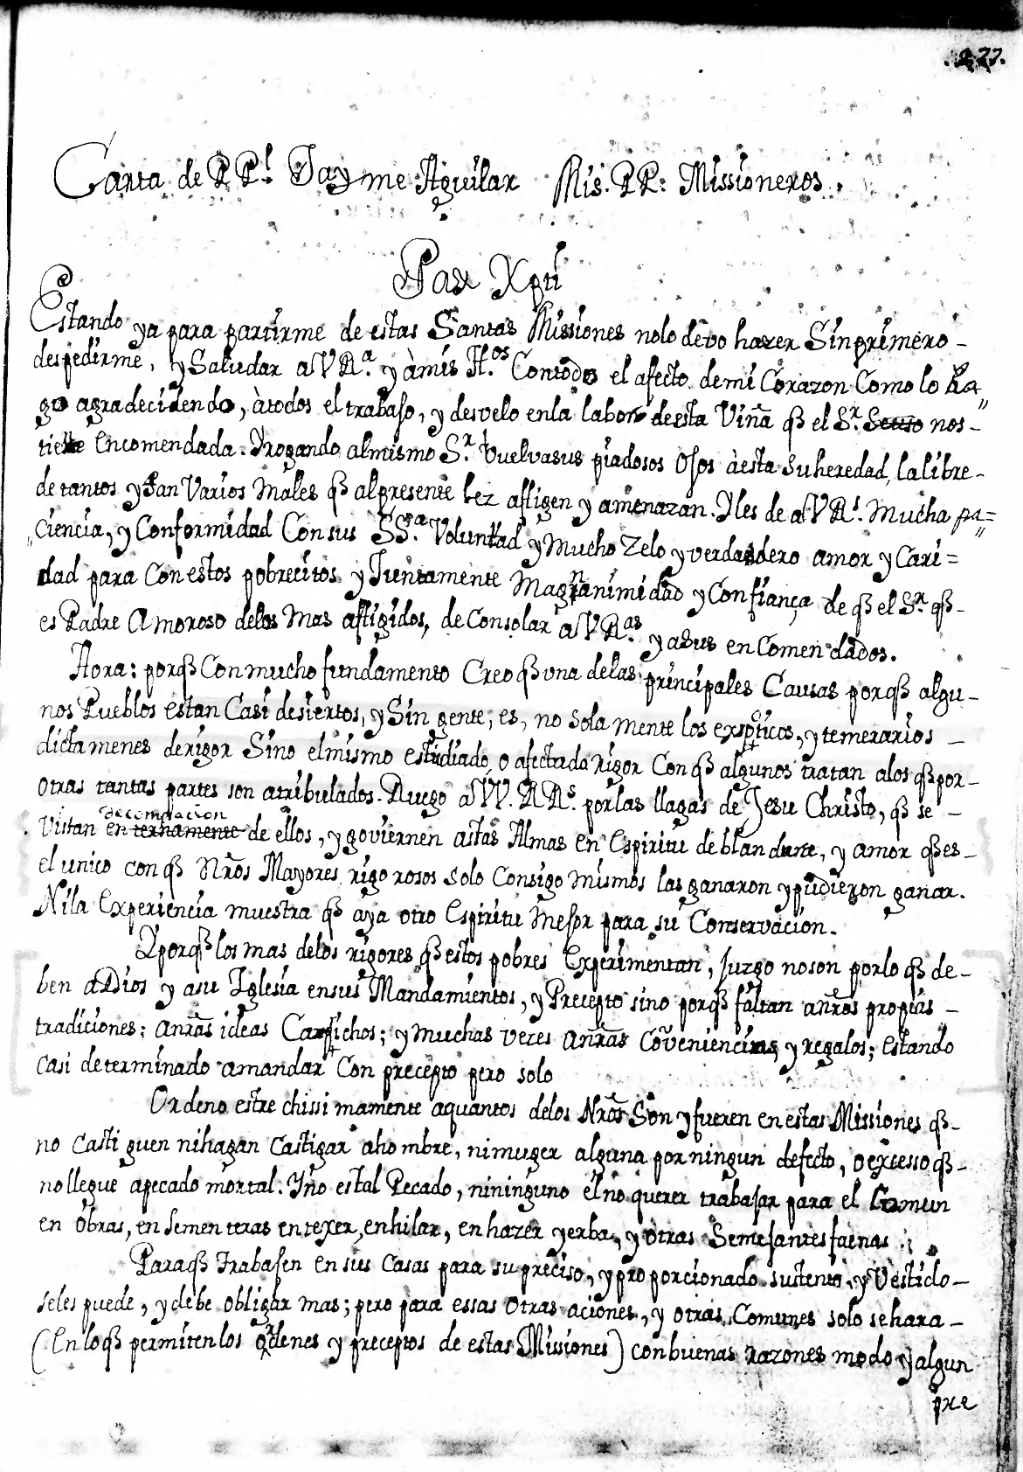 .277.
Carta de P Pl. Jayme Aguilar Mis. PP: Missioneros.
Pax Xpti
Estando ya para partirme de estas Santas Missiones nolo devo hazer Sinprimero-
despedirme, y Saludar a V Ra. y àmis Hos. Contodo el afecto demi Corazon Como lo ha=
go agradeciendo, àtodos el trabajo, y desvelo enla labor deesta Viña q̃ el Sr. nos-
tiene encomendada. Yrogando almismo Sr. Vuelvasus piadosos Ojos àesta Suheredad, lalibre-
detantos ytan Varios Males q̃ alpresente bez afligen y amenazan. Yles de a VRs. Mucha pa=
ciencia, y Conformidad Consus SSa. Voluntad y Mucho Zelo y verdadero amor y Cari=
dad para Conestos pobrecitos y Juntamente Magnanimidad y Confiança de q̃ el Sr. q̃-
es Padre Amoroso delos Mas afligidos, de Consolar a V Ras. y asus enComendados.
Aora: porq̃ Conmucho fundamento Creo q̃ una delas principales Causas porq̃ algu-
nos Pueblos estan Casi desiertos, y Sin gente; es, no Sola mente los exoticos, y temerarios -
dictamenes derigor Sino elmismo estudiado, o afectada rigor Con q̃ algunos tratan alos q̃ por-
otras tantas partes son atribulados. Ruego a VV. RRs. porlas llagas de Jesu Christo, q̃ se -
Vistan decompacion en ternamente de ellos, y goviernen astas Almas en Espiritu deblandura, y amor q̃ es-
el unico con q̃ Nr̃os Mayores rigorosos solo Consigo mismos las ganaron y pudieron ganar.
Nila Experiencia muestra q̃ aya otro Espiritu Mejor para su Conservacion.
Yporq̃ los mas delos rigores q̃ estos pobres Experimentan, Juzgo noson porlo q̃ de-
ben aDios y asu Iglesia ensus Mandamientos, y Precepto sino porq̃ faltan anr̃as propias -
tradiciones; anr̃as ideas Caprichos; y muchas vezes anr̃as Coñveniencias, y regalos; Estando
Casi determinado amandar Con precepto pero solo
Ordeno estrechissimamente aquantos delos Nr̃os Son y fueren en estas Missiones q̃-
no castiguen nihagan Castigar ahombre, nimuger alguna porningun defecto, o excesso q̃-
nollegue apecado mortal. Yño estal Pecado, nininguno el no querer trabajar para el Comun
en Obras, en Sementeras en texer, en hilar, en hazer yerba, y otras Semejantes faenas.
Paraq̃ trabajen en sus Casas para supreciso, y proporcionado sustento, y Vestido-
seles puede, y debe obligar mas; pero para essas otras aciones, y otras Comunes solo sehara-
(En loq̃ permiten los ordenes y preceptos de estas Missiones) conbuenas razones modo y algun
pre